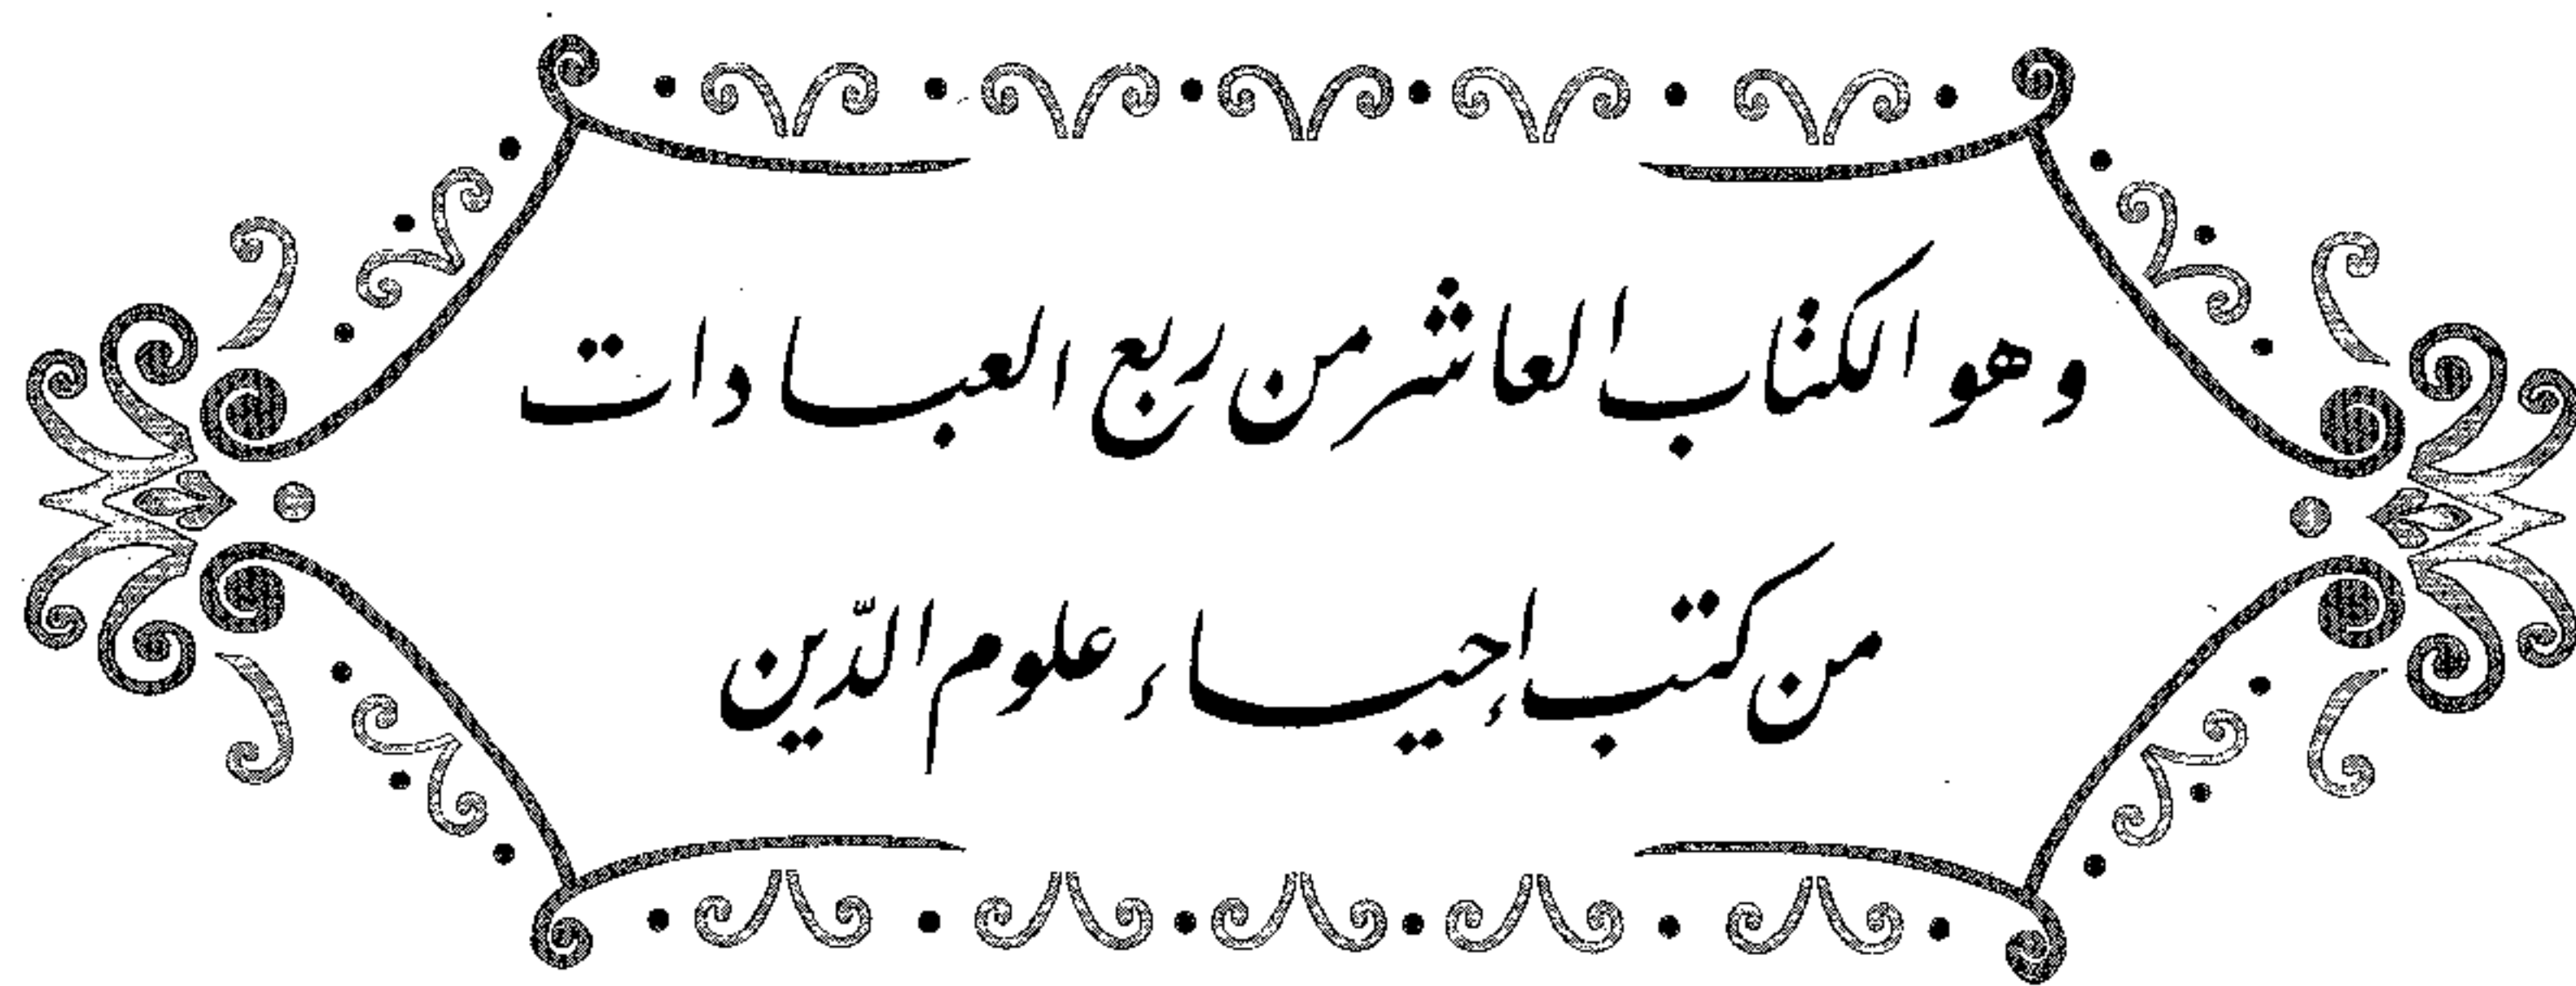 وهو الكتاب العاشر من ربع العبادات
من كتب إحياء علوم الدّين